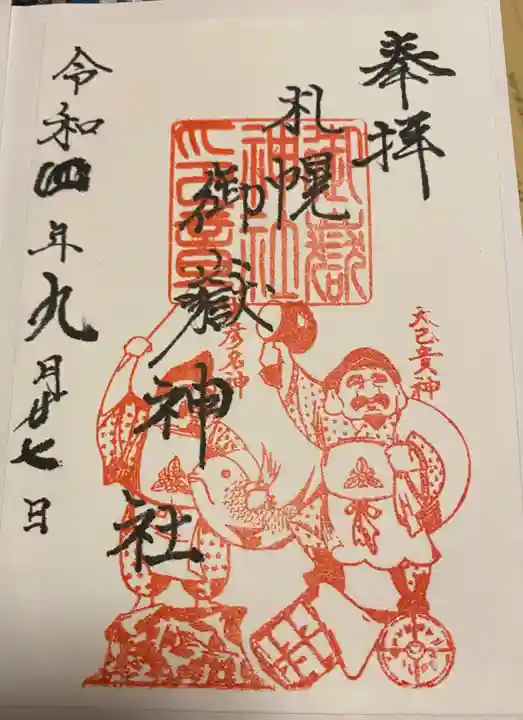 奉拝
札幌
御嶽神社
令和四年九月廿七日
御嶽
神社
大己貴神
彦名神